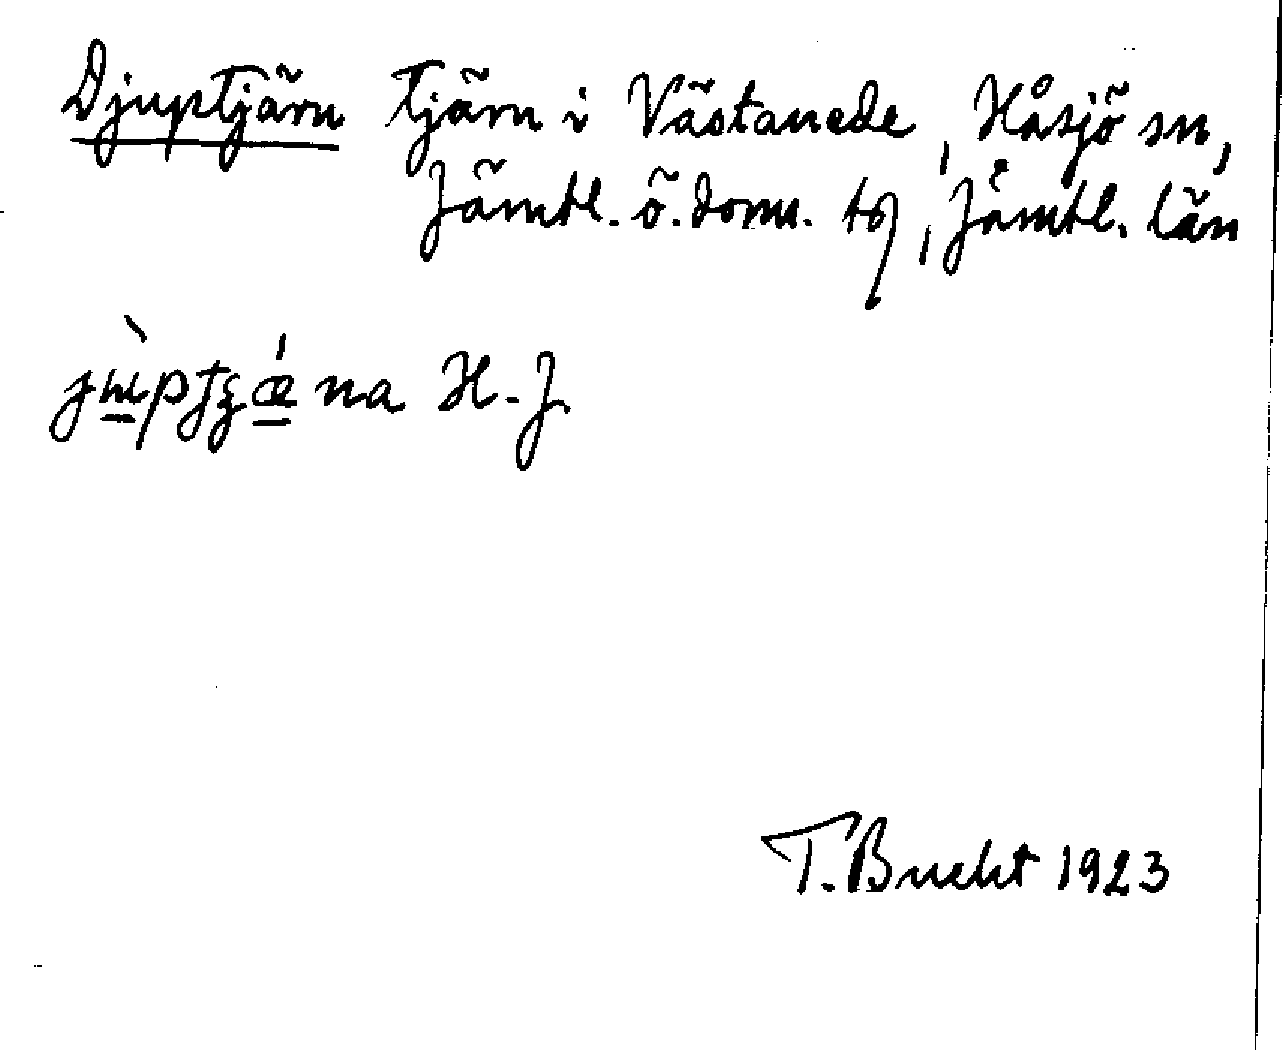 Djuptjärn tjärn i Västanede, Håsjö sn,
Jämtl. ö. doms. tg, Jämtl. län
na H. J.
T. Bucht 1923